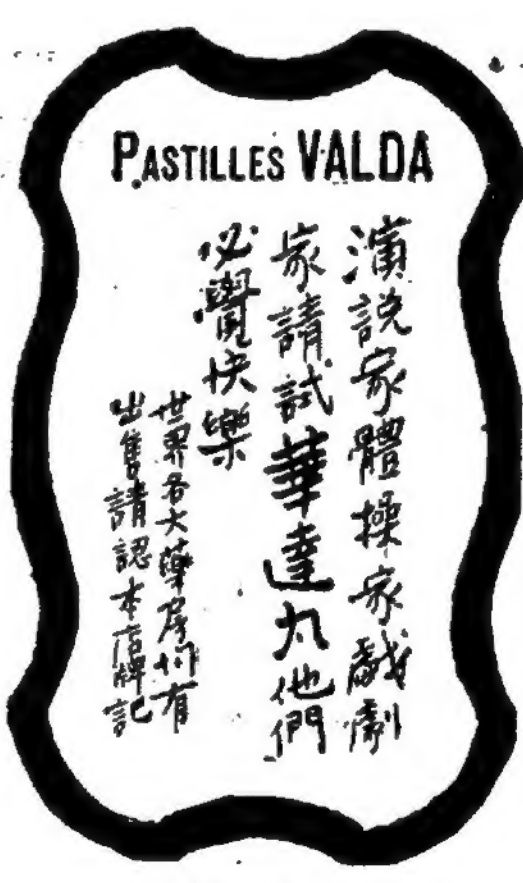 PASTILLES VALDA
演說家體操家戲劇
家請試華達丸他們
必覺快樂
世界各大藥房均有
出售請認本店牌記